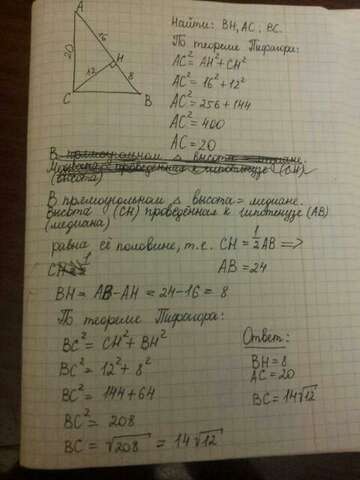 A
16
20
H
12
8
C
B
Найти: BH, AC, BC.
По теореме Пифагора:
AC² = AH² + CH²
AC² = 16² + 12²
AC² = 256 + 144
AC² = 400
AC = 20
В прямоугольном △ высота = медиане.
проведённая к гипотенузе (CH)
(высота)
В прямоугольном △ высота = медиане.
Высота (CH) проведённая к гипотенузе (AB)
(медиана)
равна её половине, т.е. CH = 1/2 AB =>
AB = 24
BH = AB - AH = 24 - 16 = 8
По теореме Пифагора:
BC² = CH² + BH²
BC² = 12² + 8²
BC² = 144 + 64
BC² = 208
BC = √208 = 14√12
Ответ:
BH = 8
AC = 20
BC = 14√12